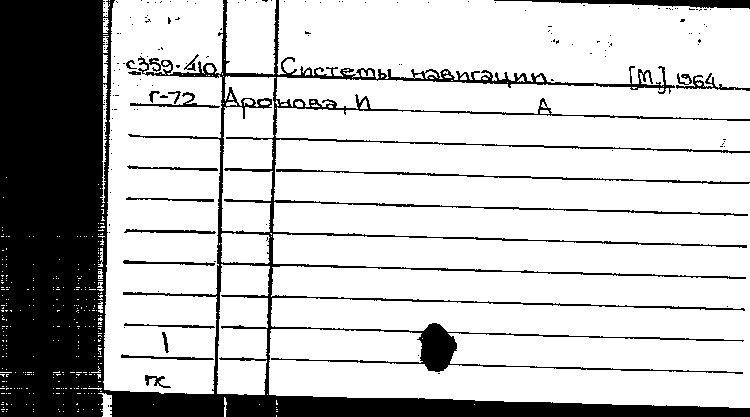 с359-410 Системы навигации. [М.], 1964.
г-72 Аронова, И А
1
пс